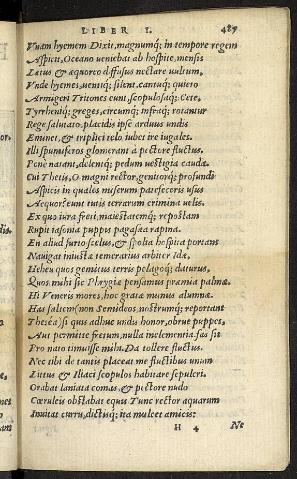 LIBER I. 489
Vnam hyemem Dixit, magnumq; in tempore regem
Aspicit, Oceano ueniebat ab hospite, mensis
Lætus & æquoreo diffusus nectare uultum,
Vnde hyemes, uentiq; silent, cantuq; quieto
Armigeri Tritones eunt, scopulosaq; Cete,
Tyrrheniq; greges, circumq; infraq; rotantur
Rege salutato, placidis ipse arduus undis
Eminet, & triplici telo iubet ire iugales.
Illi spumiferos glomerant à pectore fluctus.
Ponè natant, delentq; pedum uestigia cauda.
Cui Thetis, O magni rector, genitorq; profundi
Aspicis in quales miserum patefeceris usus
Aequor? eunt tutis terrarum crimina uelis.
Ex quo iura freti, maiestatemq; repostam
Rupit iasonia puppis pagasæa rapina.
En aliud furto scelus, & spolia hospita portans
Nauigat iniustæ temerarius arbiter Idæ,
Heheu quos gemitus terris pelagoq; daturus,
Quos mihi sic Phrygiæ pensamus præmia palmæ.
Hi Veneris mores, hoc gratæ munus alumnæ.
Has saltem (non Semideos nostrumq; reportant
Theséa) si quis adhuc undis honor, obrue puppes,
Aut permitte fretum, nulla inclementia, fas sit
Pro nato timuisse mihi. Da tollere fluctus.
Nec tibi de tantis placeat me fluctibus unum
Littus & Iliaci scopulos habitare sepulcri.
Orabat laniata comas, & pectore nudo
Cæruleis obstabat equis Tunc rector aquarum
Inuitat curru, dictisq; ita mulcet amicis:
H 4 Ne